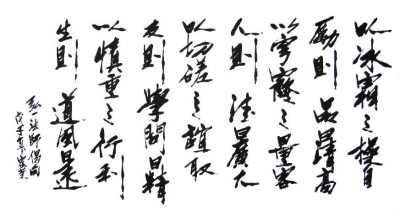 以冰霜之操自
励则品清高
以穹窿之量容
人则德日广大
以切磋之谊取
友则学问日精
以慎重之行利
生则道风日远
弘一法师偈句
戊子年